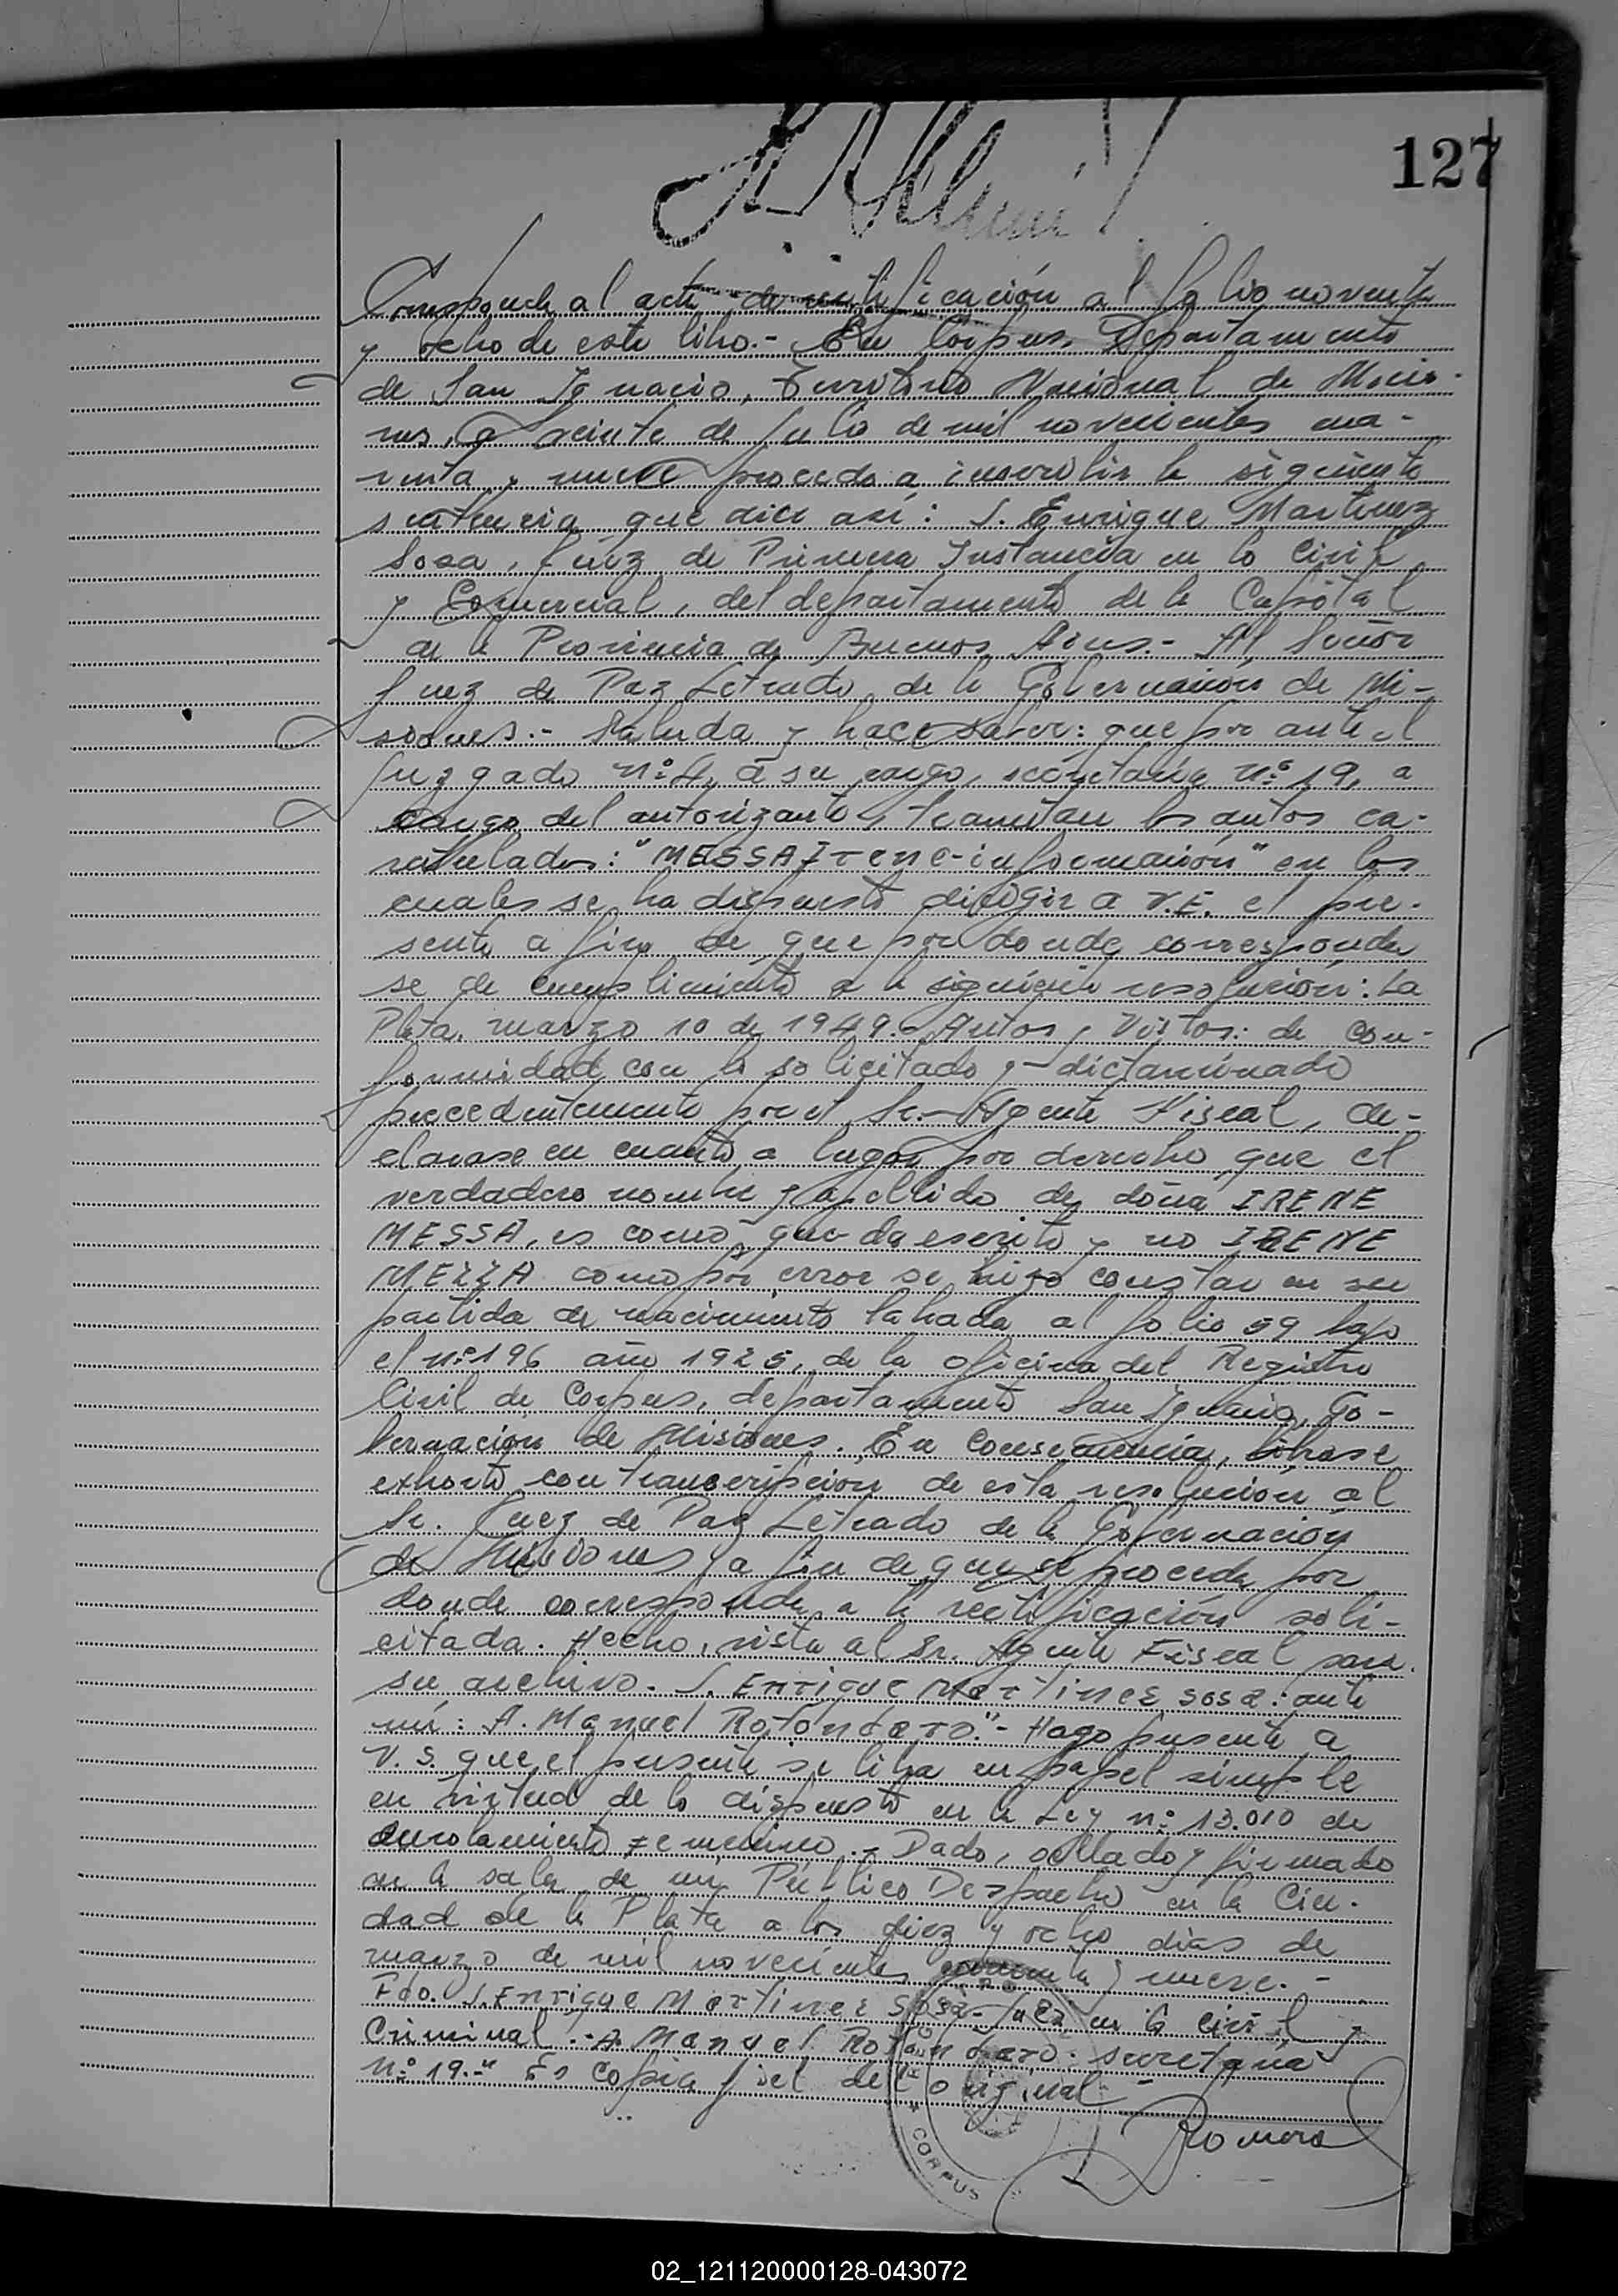 127
Corresponde al acta de rectificación al folio noventa
y ocho de este libro.- En Corpus, Departamento
de San Ignacio, Territorio Nacional de Misio-
nes, a veinte de Julio de mil novecientos cua-
renta y nueve procedo a inscribir la siguiente
sentencia que dice así: J. Enrique Martinez
Sosa, Juez de Primera Instancia en lo Civil
y Comercial, del departamento de la Capital
de la Provincia de Buenos Aires.- Al Señor
Juez de Paz Letrado de la Gobernación de Mi-
siones.- Saluda y hace saber: que por ante el
Juzgado nº 4, a su cargo, secretaría nº 19, a
cargo del autorizante, tramitan los autos ca-
ratulados: "MESSA Irene-información" en los
cuales se ha dispuesto dirigir a V.E. el pre-
sente a fin de que por donde corresponda
se de cumplimiento a la siguiente resolución: La
Plata, marzo 10 de 1949.- Autos y Vistos: de con-
formidad con lo solicitado y dictaminado
precedentemente por el Sr. Agente Fiscal, de-
clarase en cuanto a lugar por derecho que el
verdadero nombre y apellido de doña IRENE
MESSA, es como queda escrito y no IRENE
MEZZA como por error se hizo constar en su
partida de nacimiento labrada al folio 59 bajo
el nº 196 año 1925, de la oficina del Registro
Civil de Corpus, departamento San Ignacio, Go-
bernación de Misiones. En consecuencia, líbrase
exhorto con transcripción de esta resolución al
Sr. Juez de Paz Letrado de la Gobernación
de Misiones a fin de que se proceda por
donde corresponda a la rectificación soli-
citada. Hecho, vista al Sr. Agente Fiscal para
su archivo. J. Enrique Martinez Sosa: ante
mí: A. Manuel Rotondaro."- Hago presente a
V.S. que el presente se libra en papel simple
en virtud de lo dispuesto en la Ley nº 13.010 de
enrolamiento femenino.- Dado, sellado y firmado
en la sala de mi Público Despacho en la Ciu-
dad de la Plata a los diez y ocho dias de
marzo de mil novecientos cuarenta y nueve.-
Fdo. J. Enrique Martinez Sosa- Juez en lo Civil y
Criminal.- A. Manuel Rotondaro. secretaría
nº 19." Es copia fiel del original-
Romero
CORPUS
02_121120000128-043072